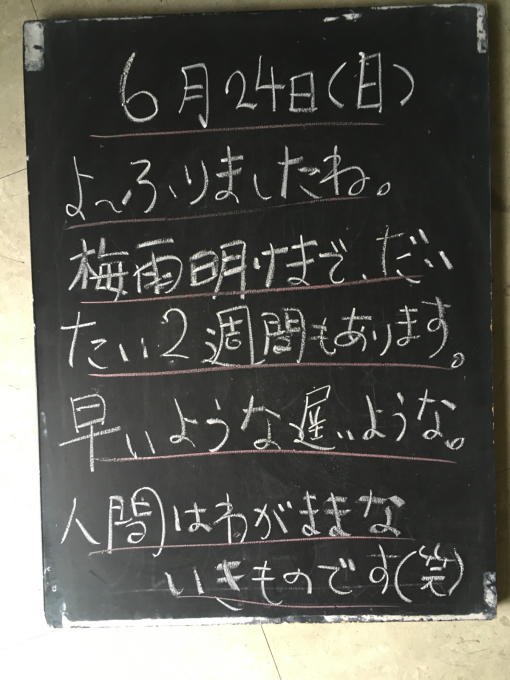 6月24日(日)
よ〜ふりましたね。
梅雨明けまで、だい
たい2週間もあります。
早いような遅いような。
人間はわがままな
いきものです(笑)